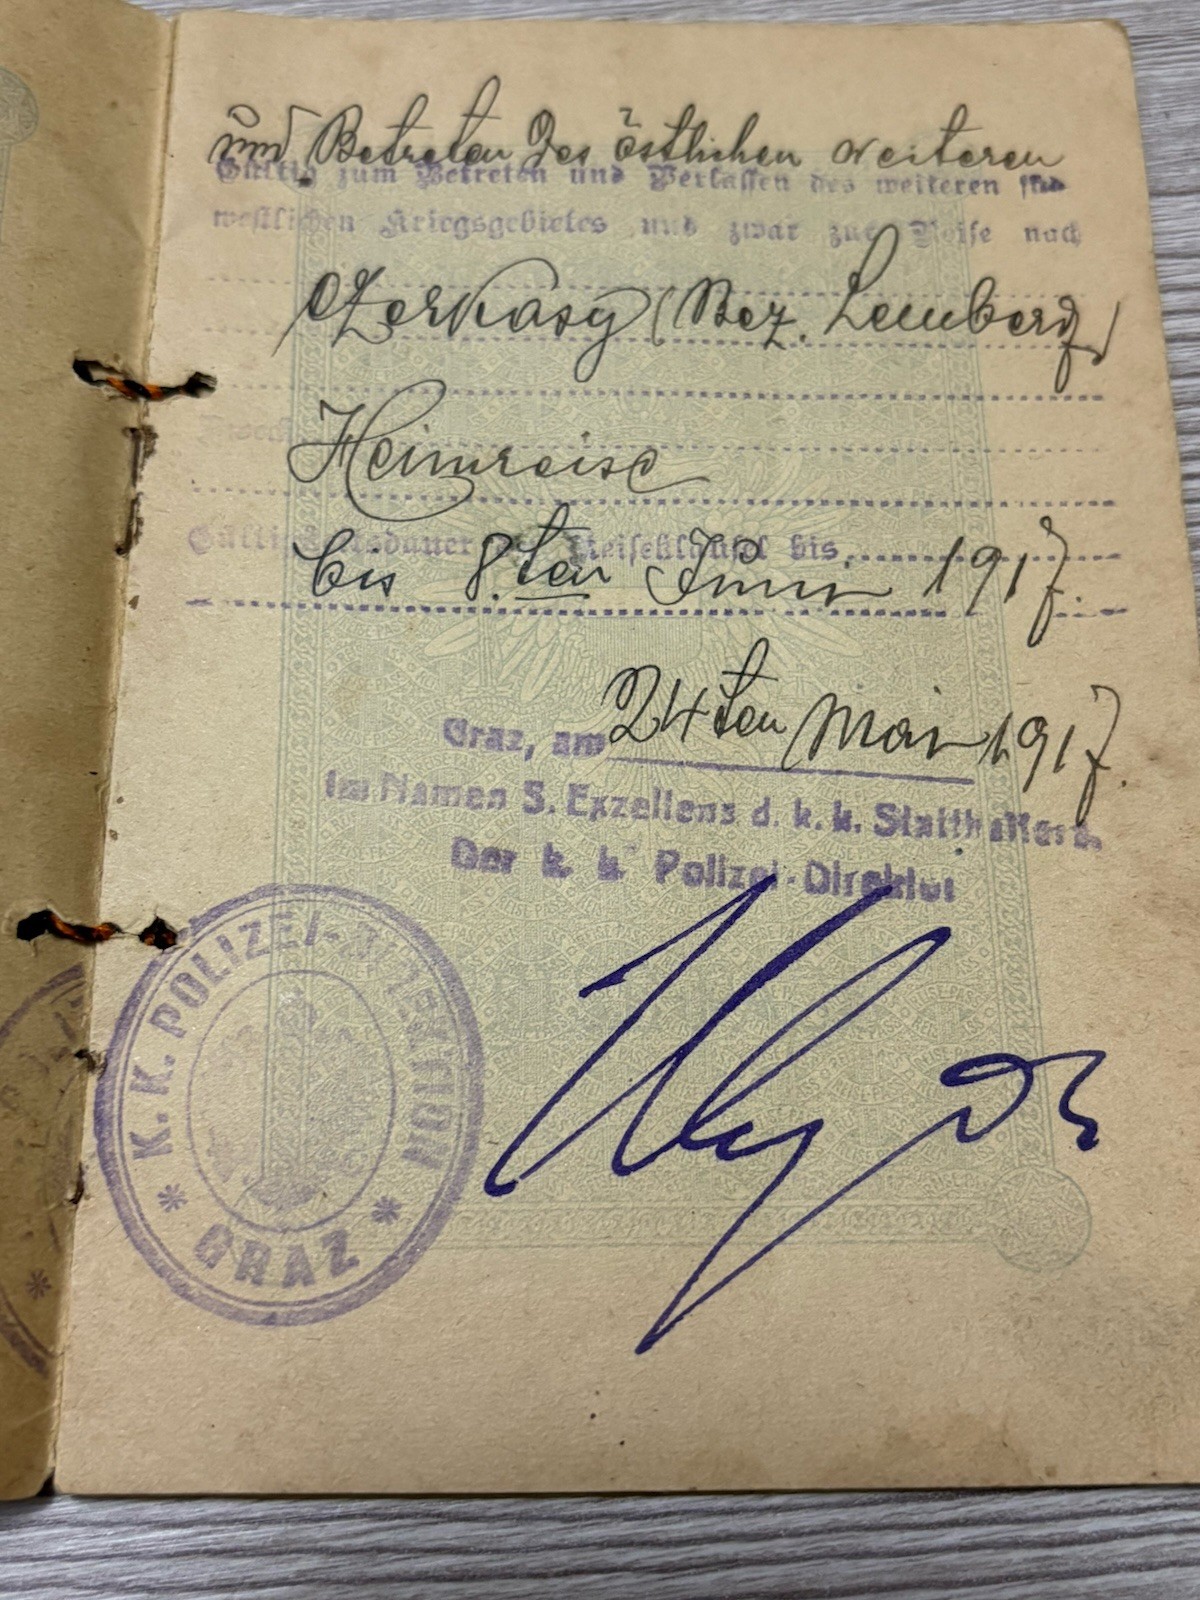 und Betreten des östlichen weiteren
Gültig zum Betreten und Verlassen des weiteren süd
westlichen Kriegsgebietes und zwar zur Reise nach
Czerkasy (Bez. Lemberg)
Zweck
Heimreise
Gültigkeitsdauer der Reiseklausel bis
bis 8.ten Juni 1917.
Graz, am 24ten Mai 1917.
Im Namen S. Exzellenz d. k. k. Statthalters
Der k. k. Polizei-Direktor
K. K. POLIZEI-DIREKTION
* GRAZ *